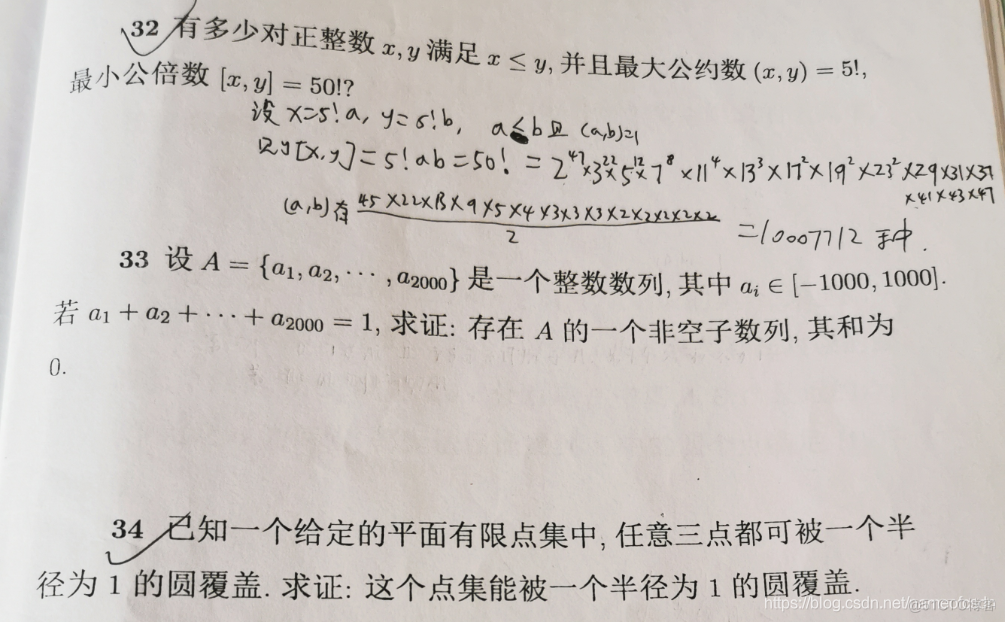 32 有多少对正整数 x, y 满足 x ≤ y, 并且最大公约数 (x, y) = 5!,
最小公倍数 [x, y] = 50!?
设 x=5!a, y=5!b, a≤b且 (a,b)=1
则[x,y]=5!ab=50! = 2^47×3^22×5^12×7^8×11^4×13^3×17^2×19^2×23^2×29×31×37
×41×43×47
(a,b)有 45×22×13×9×5×4×3×3×3×2×2×2×2×2
2
=10007712 种.
33 设 A = {a₁, a₂, ···, a₂₀₀₀} 是一个整数数列, 其中 aᵢ ∈ [−1000, 1000].
若 a₁ + a₂ + ··· + a₂₀₀₀ = 1, 求证: 存在 A 的一个非空子数列, 其和为
0.
34 已知一个给定的平面有限点集中, 任意三点都可被一个半
径为 1 的圆覆盖. 求证: 这个点集能被一个半径为 1 的圆覆盖.